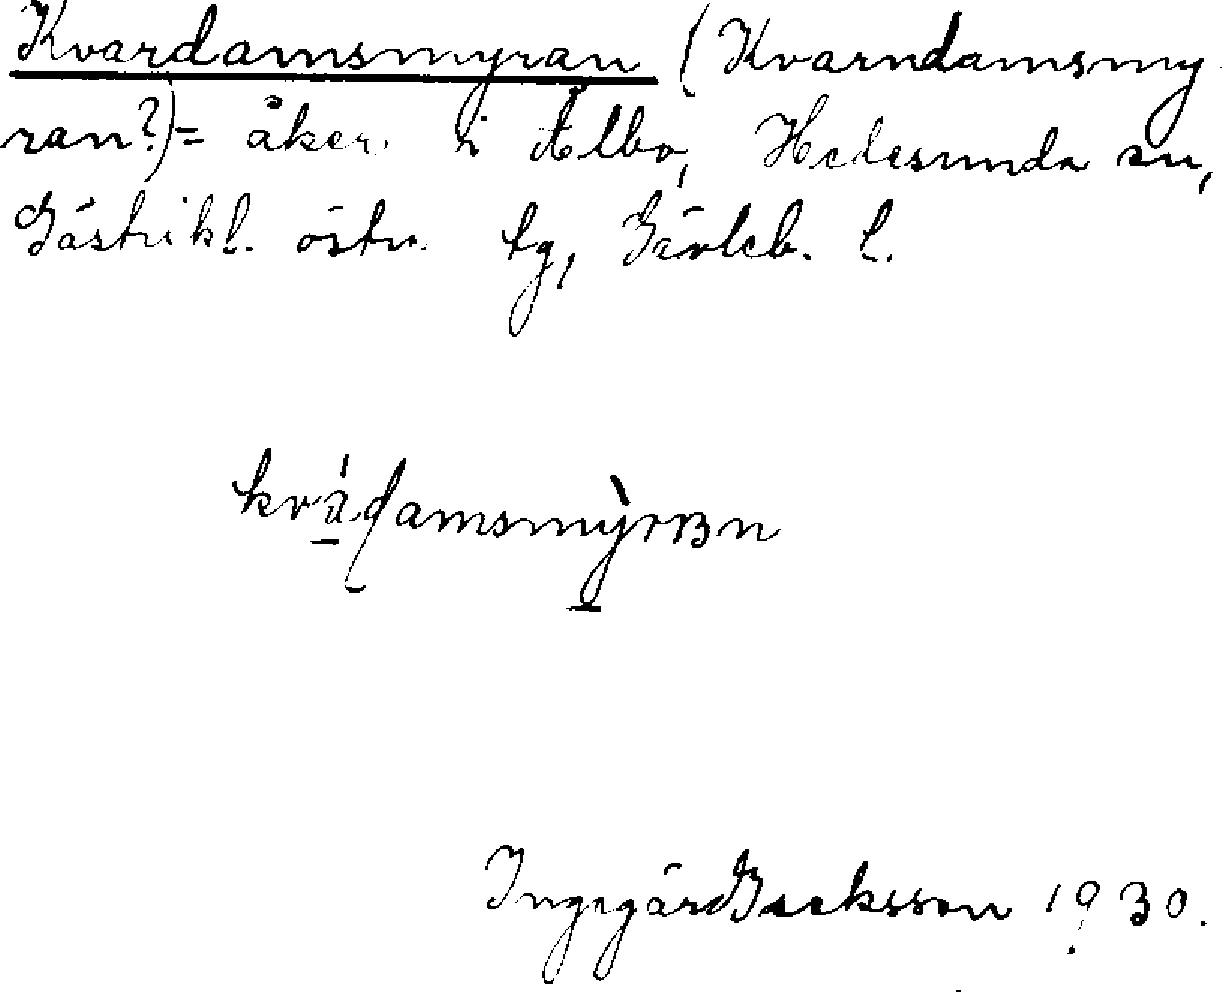 Kvardamsmyran (Kvarndamsmy-
ran?) = åker i Ålbo, Hedesunda sn,
Gästrikl. östra tg, Gävleb. l.
kvádamsmỳrrʙn
Ingegärd Backsson 1930.